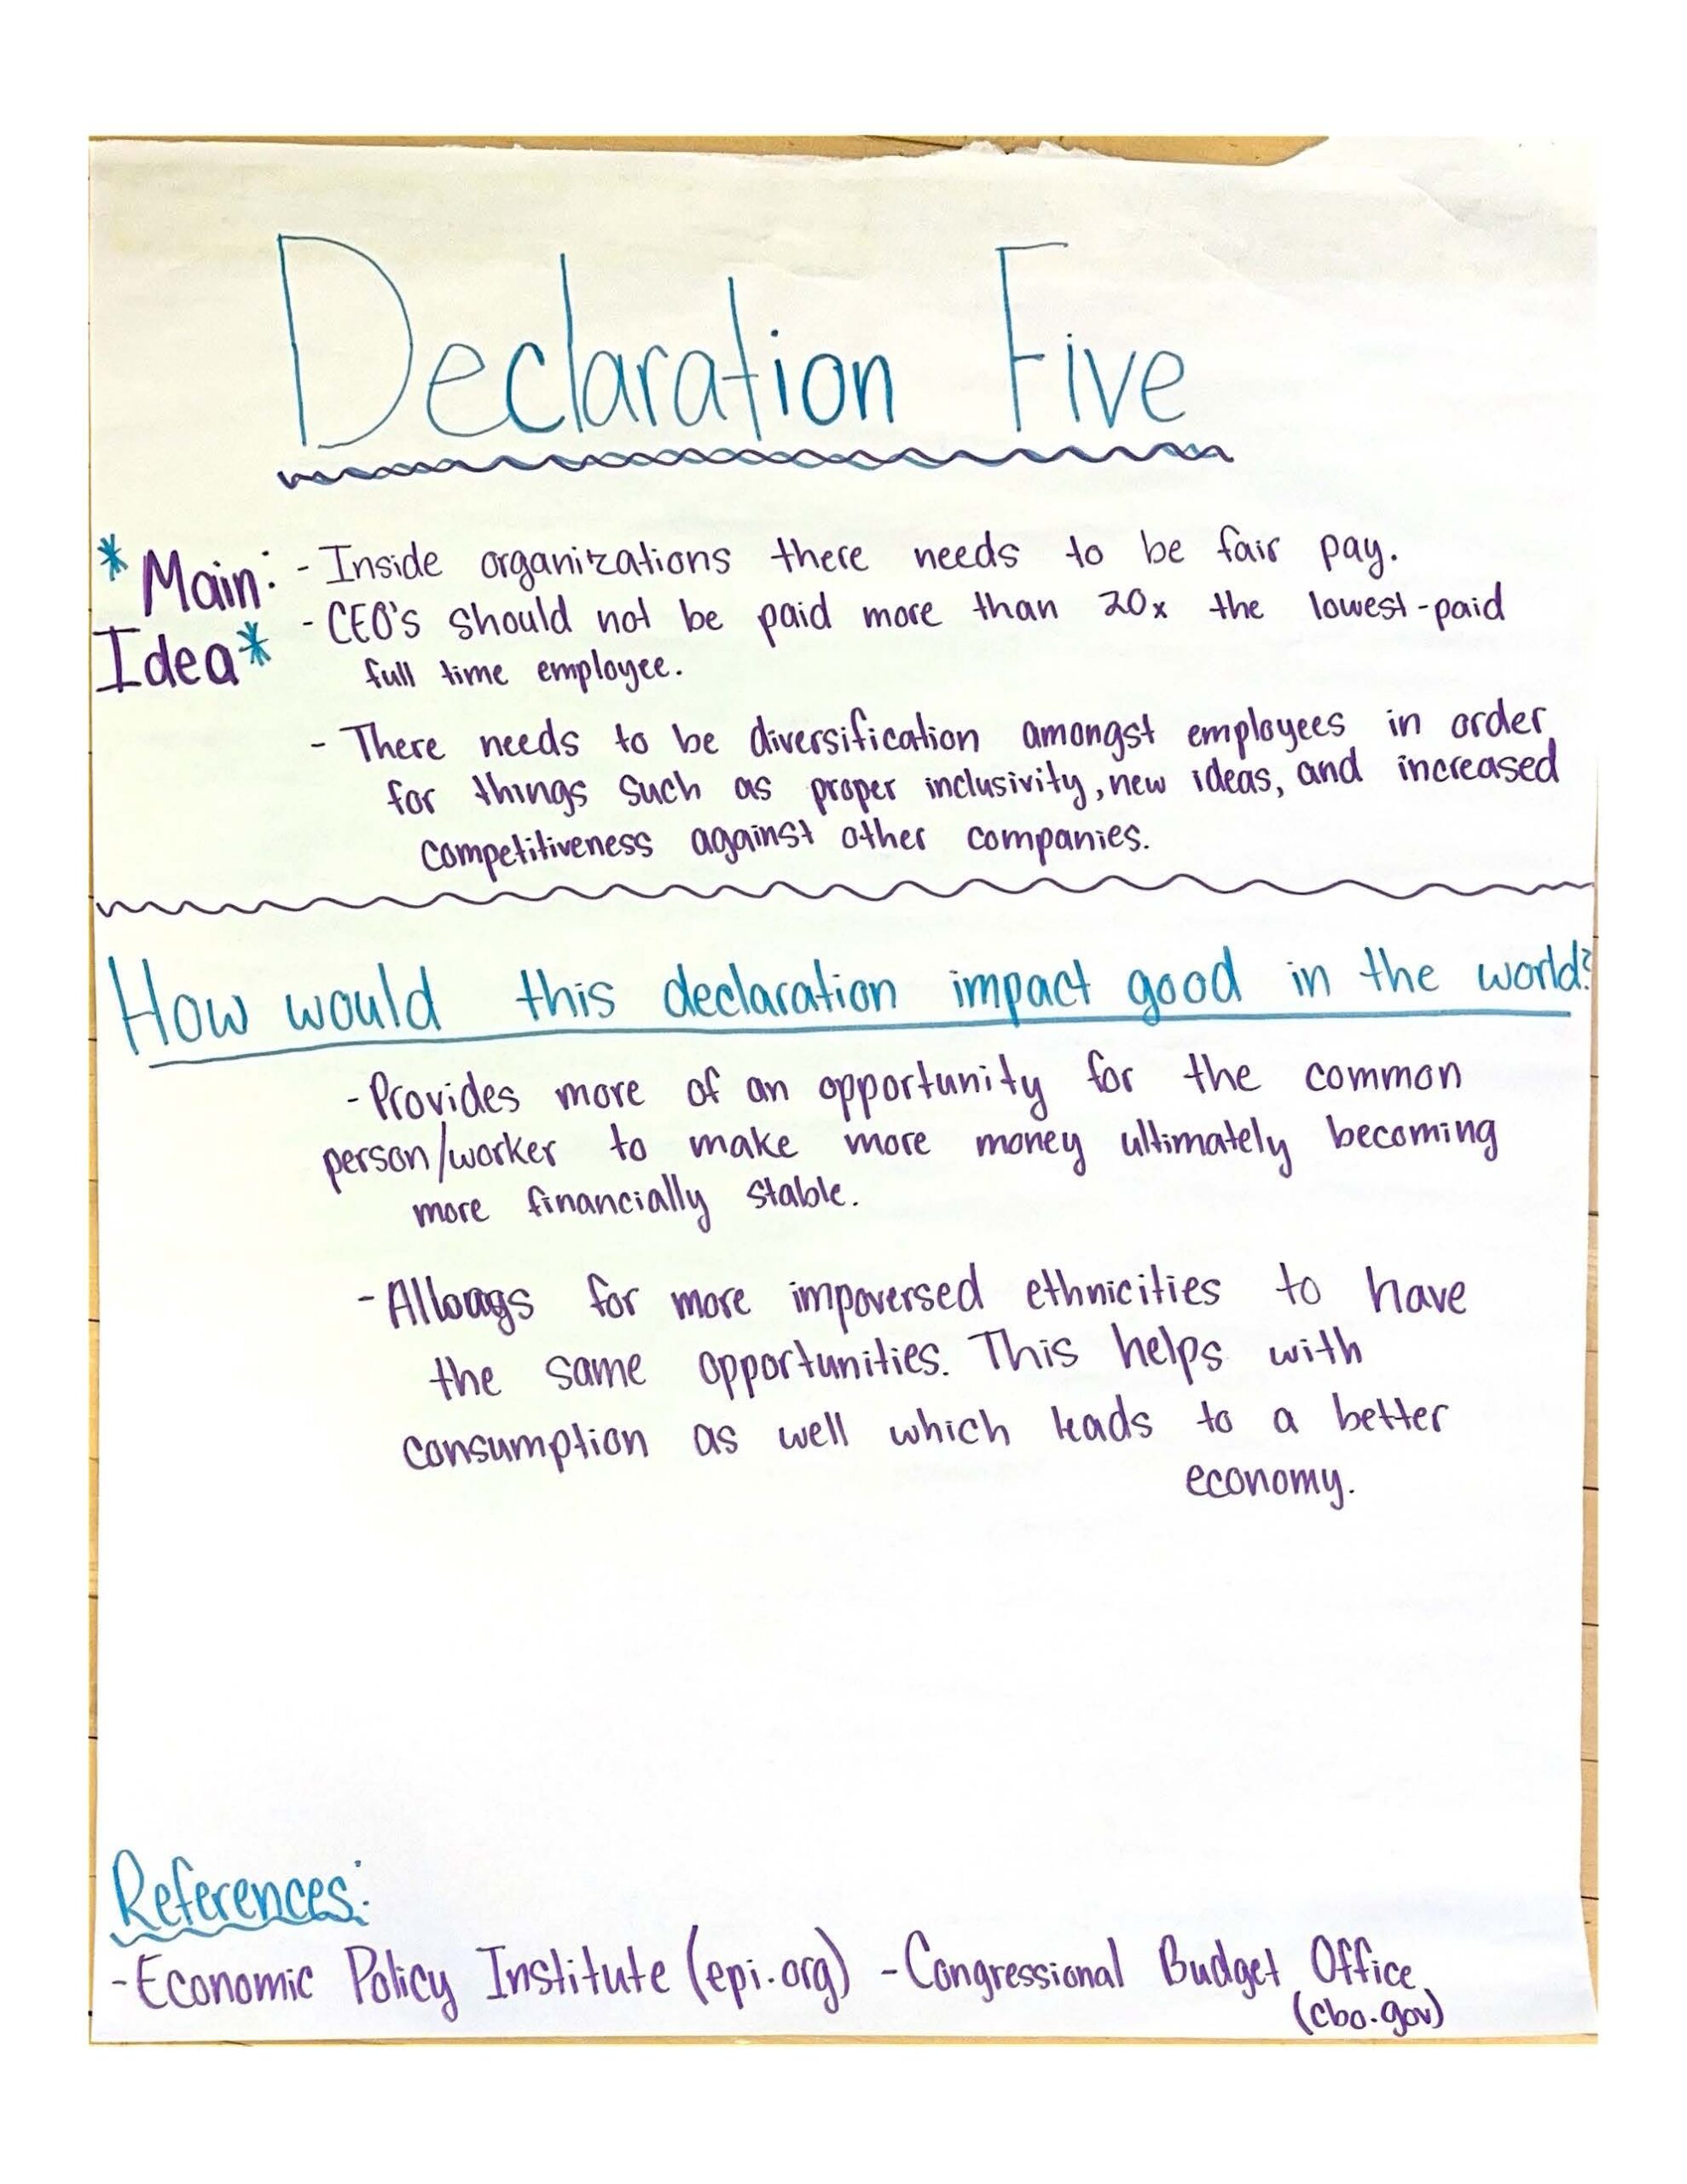 Declaration Five
*Main: - Inside organizations there needs to be fair pay.
Idea* - CEO's should not be paid more than 20x the lowest-paid
full time employee.
- There needs to be diversification amongst employees in order
for things such as proper inclusivity, new ideas, and increased
competitiveness against other companies.
How would this declaration impact good in the world?
- Provides more of an opportunity for the common
person/worker to make more money ultimately becoming
more financially stable.
- Allows for more impoversed ethnicities to have
the same opportunities. This helps with
consumption as well which leads to a better
economy.
References:
- Economic Policy Institute (epi.org) - Congressional Budget Office
(cbo.gov)